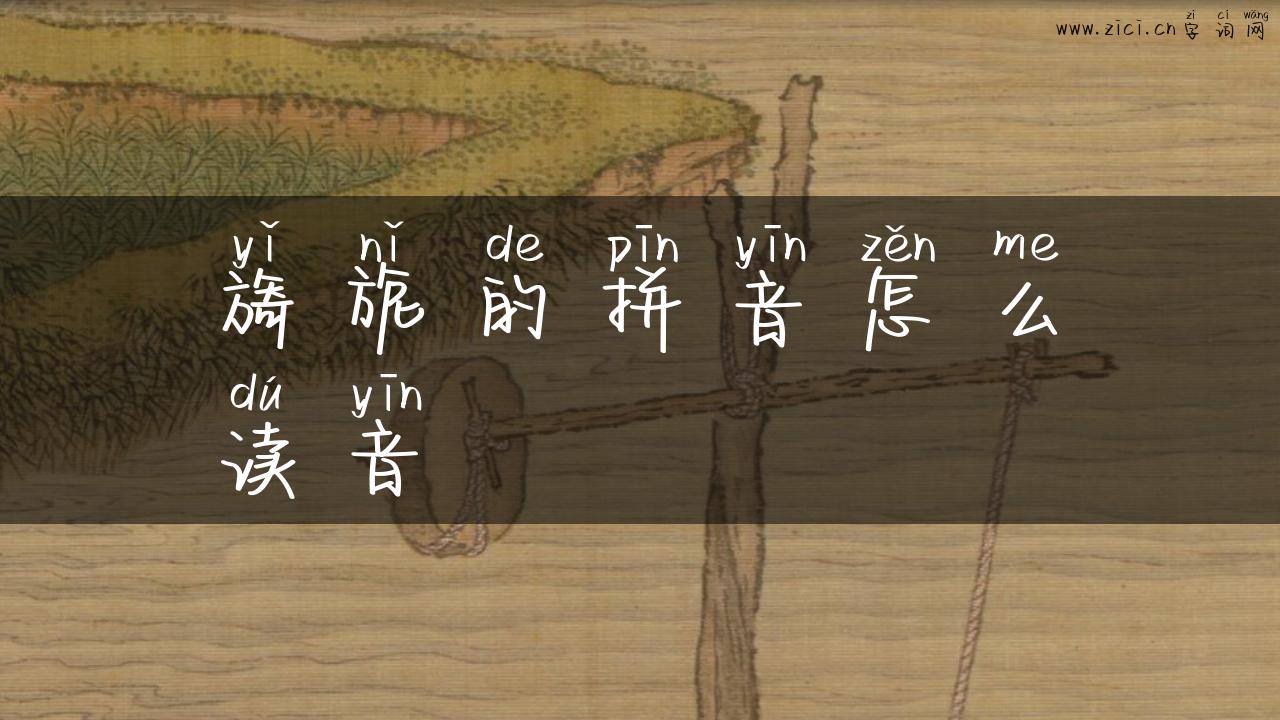 zì cí wǎng
www.zici.cn 字 词 网
yǐ nǐ de pīn yīn zěn me
旖 旎 的 拼 音 怎 么
dú yīn
读 音